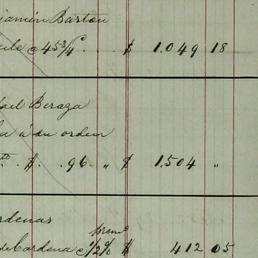 jamin Barton
c 45 3/4 c $ 1.049 18
ael Beraza
a' su orden
$ .96. " $ 1.504 "
rdenas
prem
de Cardenas 1/2 % $ 412 05